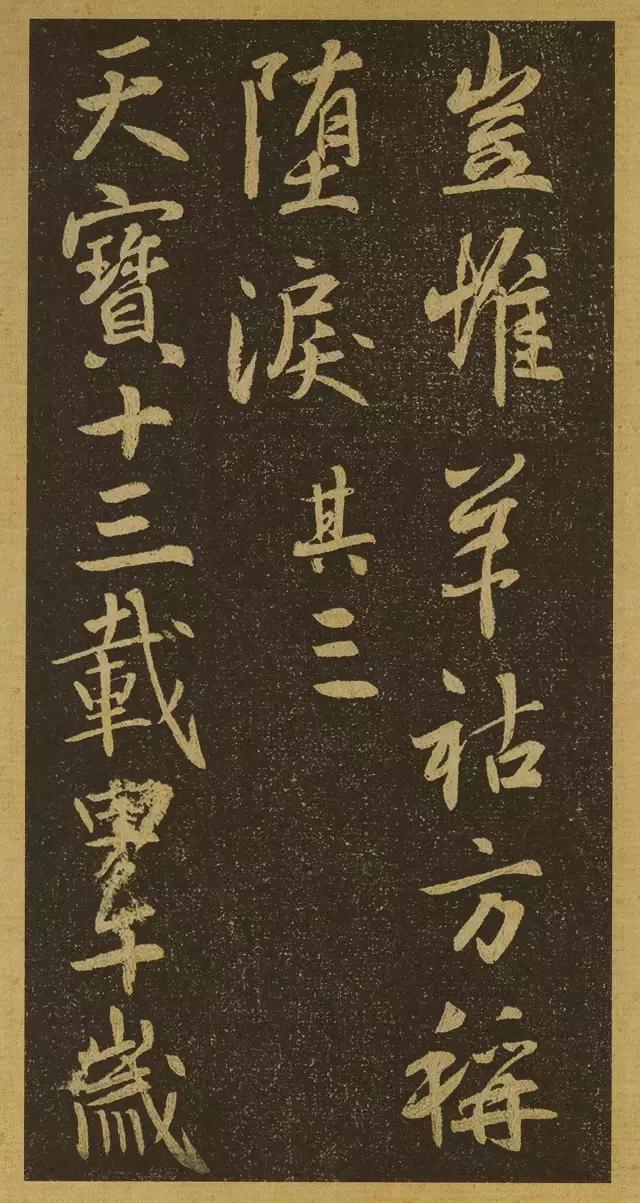 豈惟羊祜方稱
堕淚其三
天寶十三載甲午歲